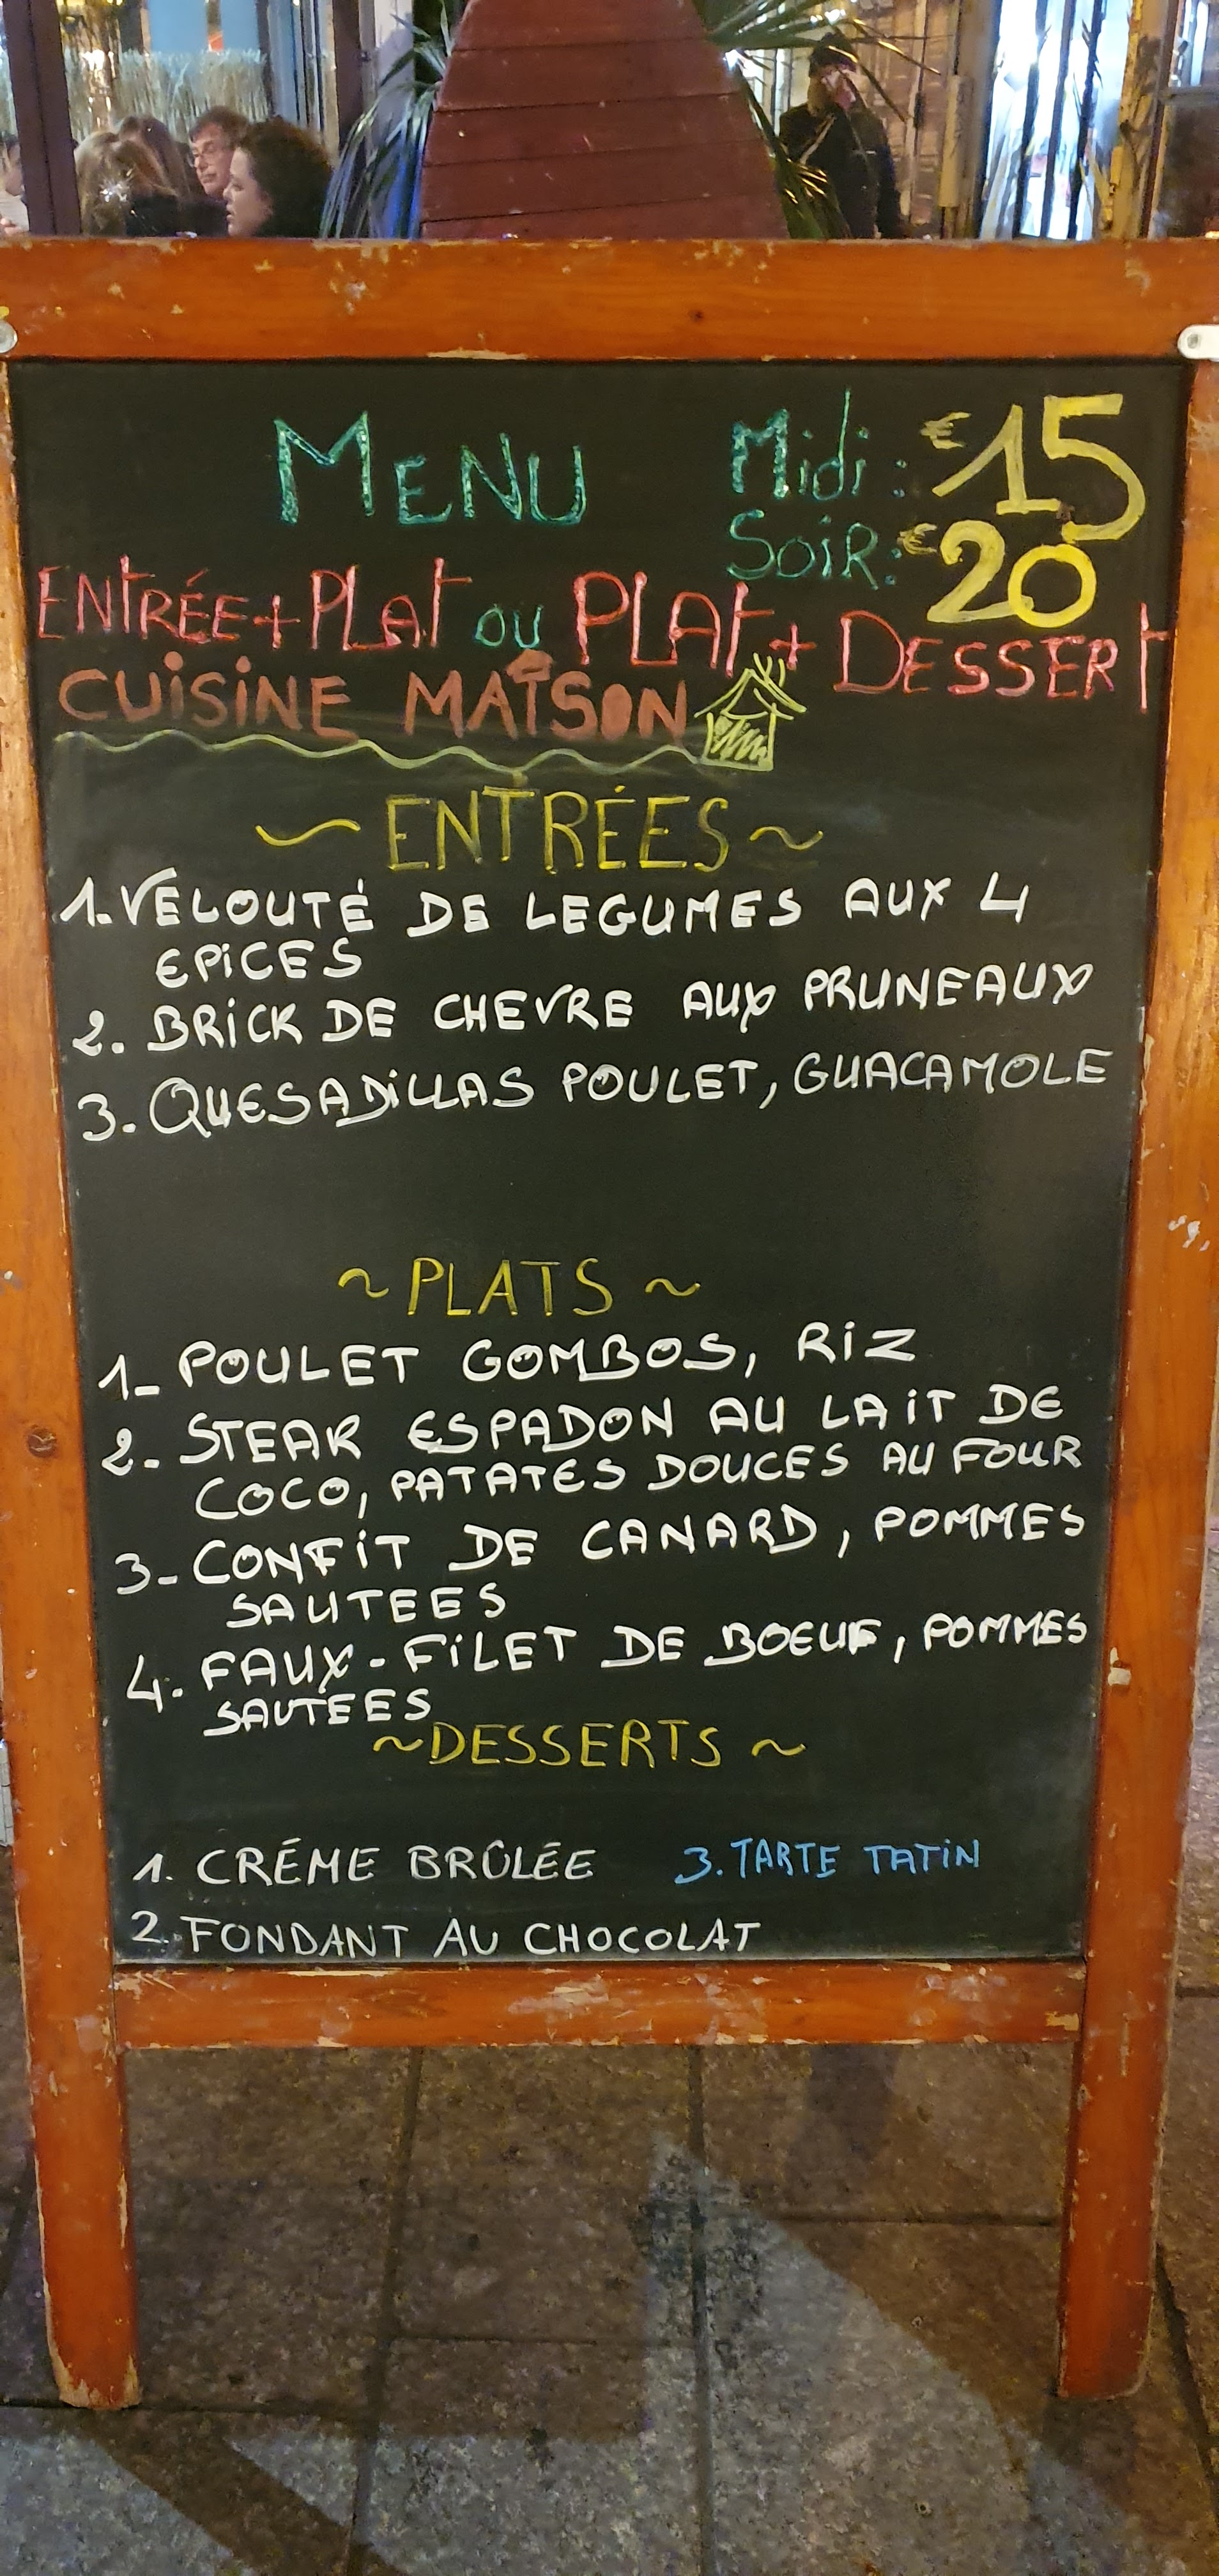 MENU
Midi : €15
SOIR: €20
ENTRÉE+PLAT OU PLAT + DESSERT
CUISINE MAISON
~ ENTRÉES ~
1. VELOUTÉ DE LEGUMES AUX 4
EPICES
2. BRICK DE CHEVRE AUX PRUNEAUX
3. QUESADILLAS POULET, GUACAMOLE
~ PLATS ~
1- POULET GOMBOS, RIZ
2- STEAK ESPADON AU LAIT DE
COCO, PATATES DOUCES AU FOUR
3- CONFIT DE CANARD, POMMES
SAUTEES
4. FAUX-FILET DE BOEUF, POMMES
SAUTÉES
~ DESSERTS ~
1. CRÉME BRÛLÉE 3. TARTE TATIN
2. FONDANT AU CHOCOLAT